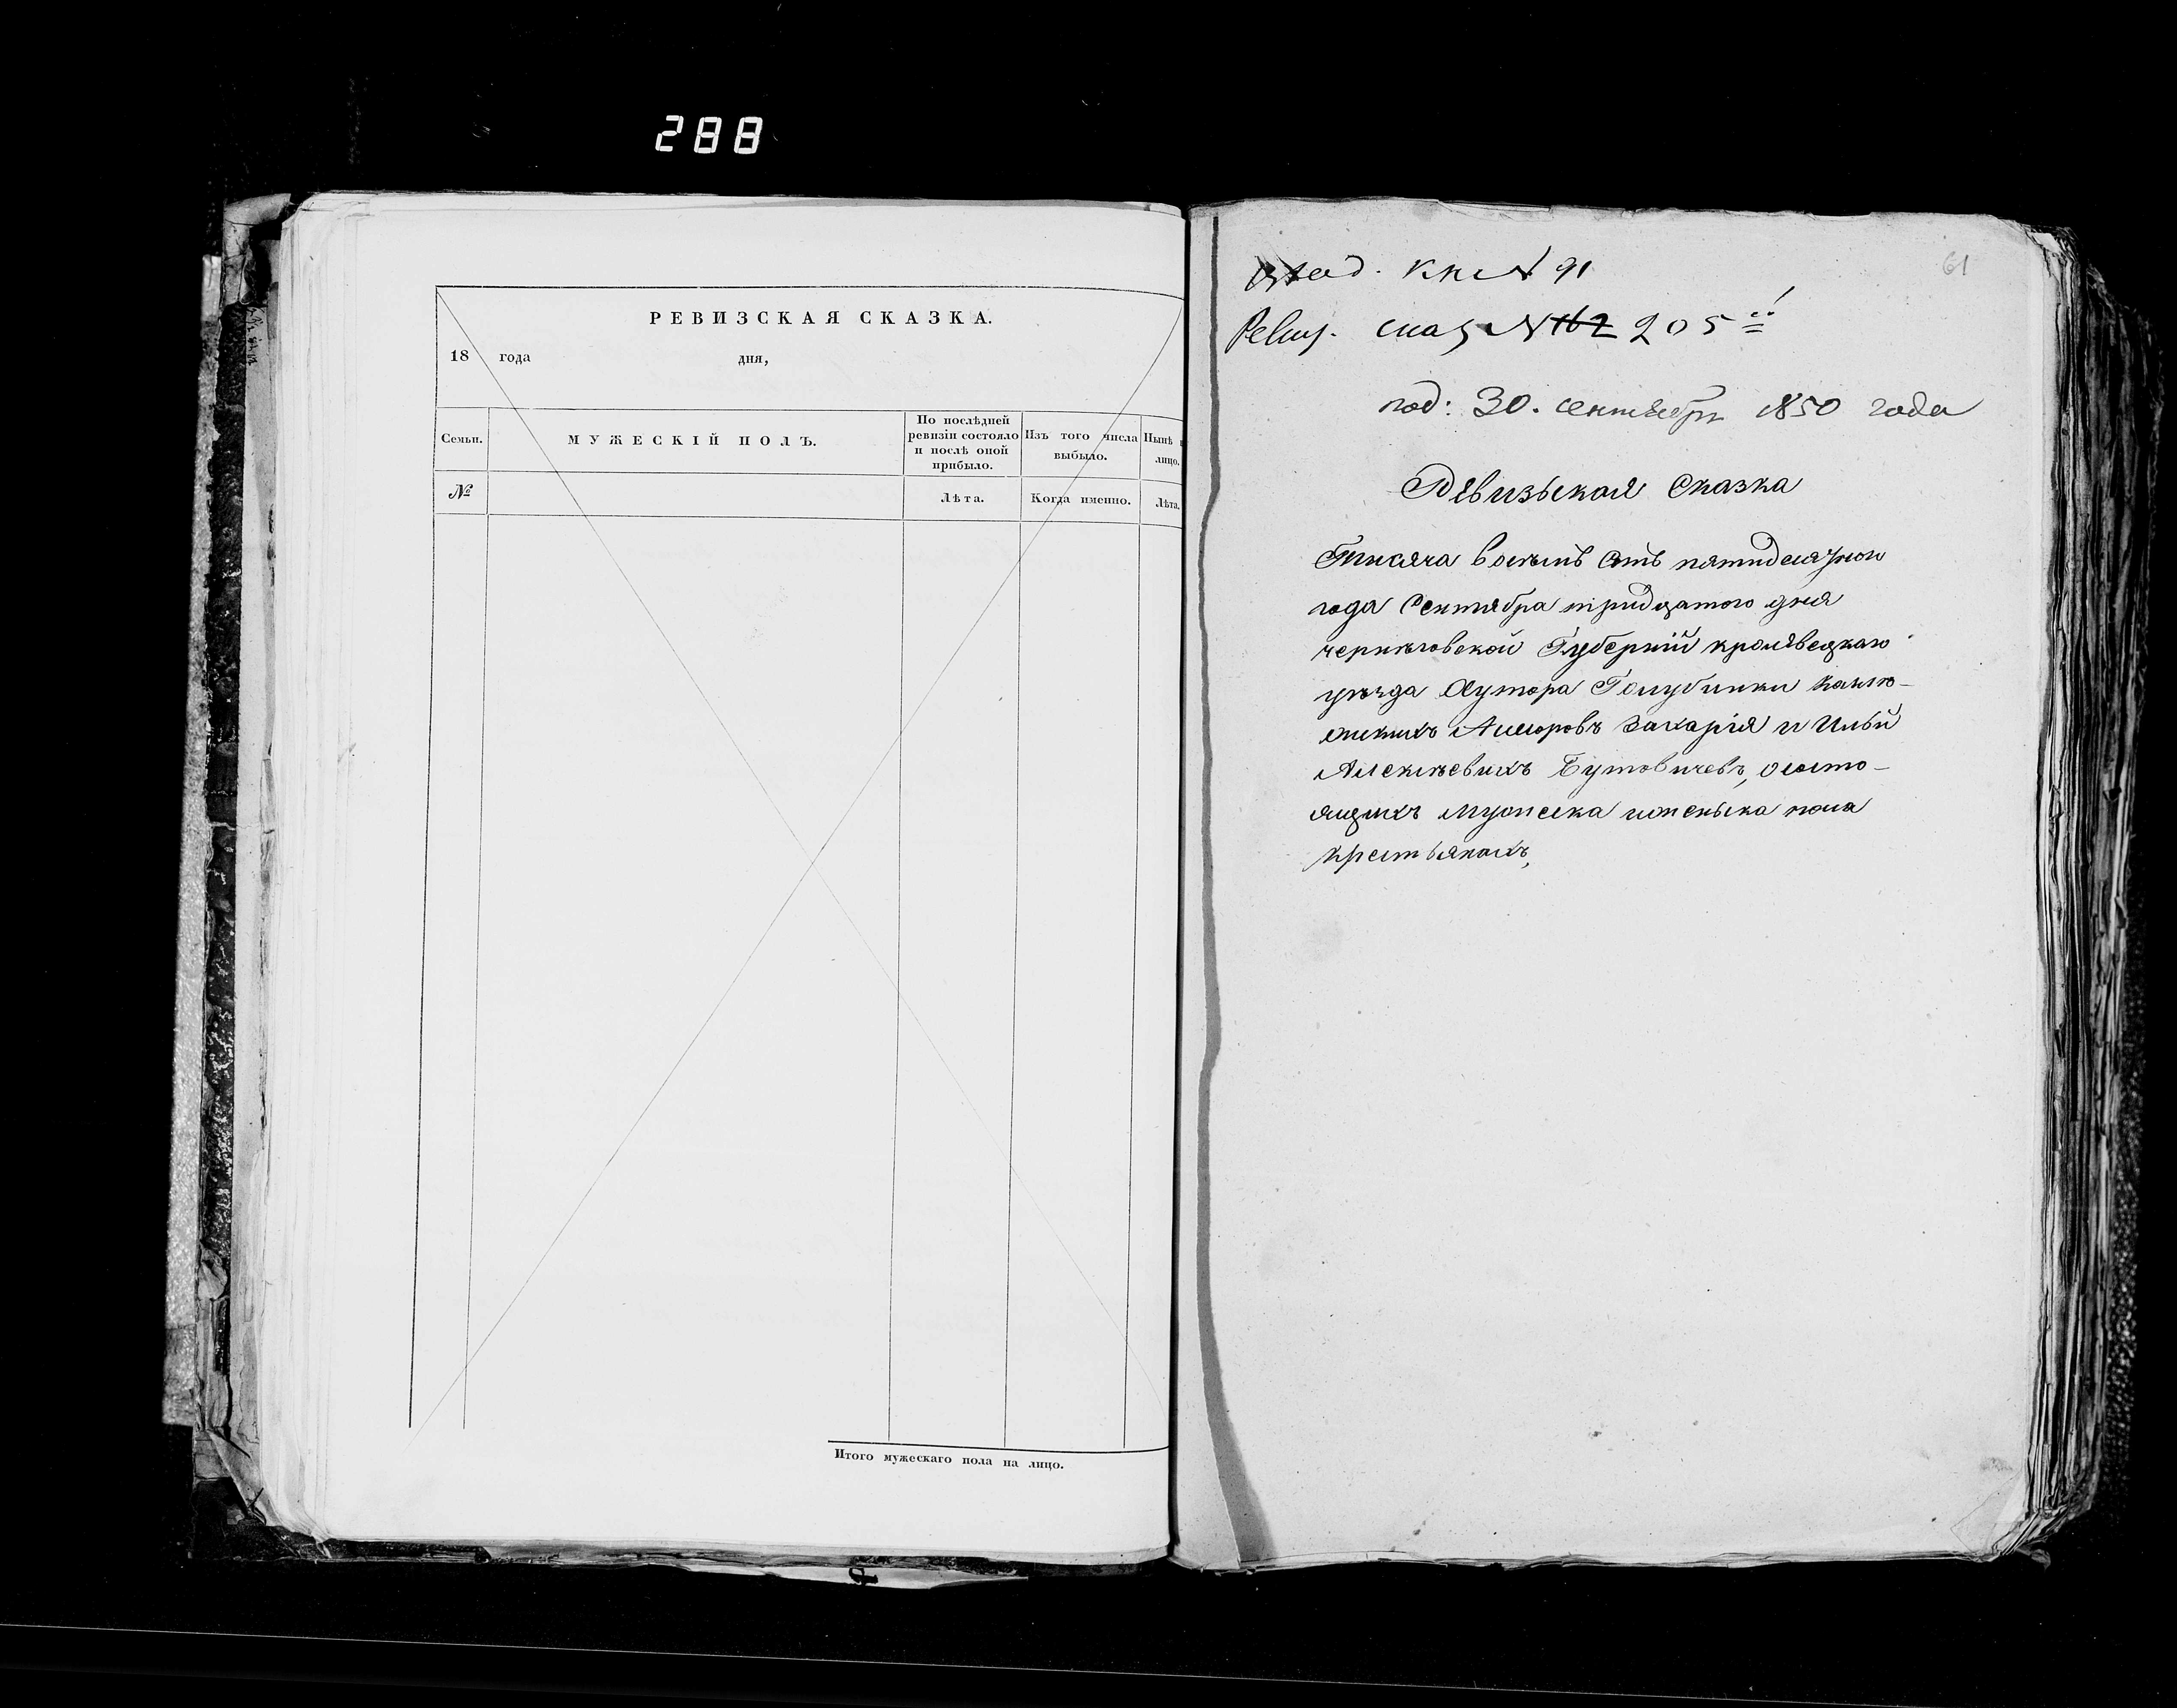 288
РЕВИЗСКАЯ СКАЗКА.
18 года дня,
Семьи.
МУЖЕСКІЙ ПОЛЪ.
По послѣдней
ревизіи состояло
и послѣ оной
прибыло.
Изъ того числа
выбыло.
Нынѣ
лицо.
№
Лѣта.
Когда именно.
Лѣта.
Итого мужескаго пола на лицо.
61
кн № 91
Ревиз. сказ № 162 205
под: 30. сентября 1850 года
Ревизьская Сказка
Тысяча восемь сотъ пятидесятого
года Сентября тридцатого дня
черниговской Губерніи кролевецкаго
уезда Хутора Голубинки
Захарія и Ильи
Алексѣевихъ Бутовичевъ, о состо-
ящихъ мужеска и женьска пола
крестьянахъ,